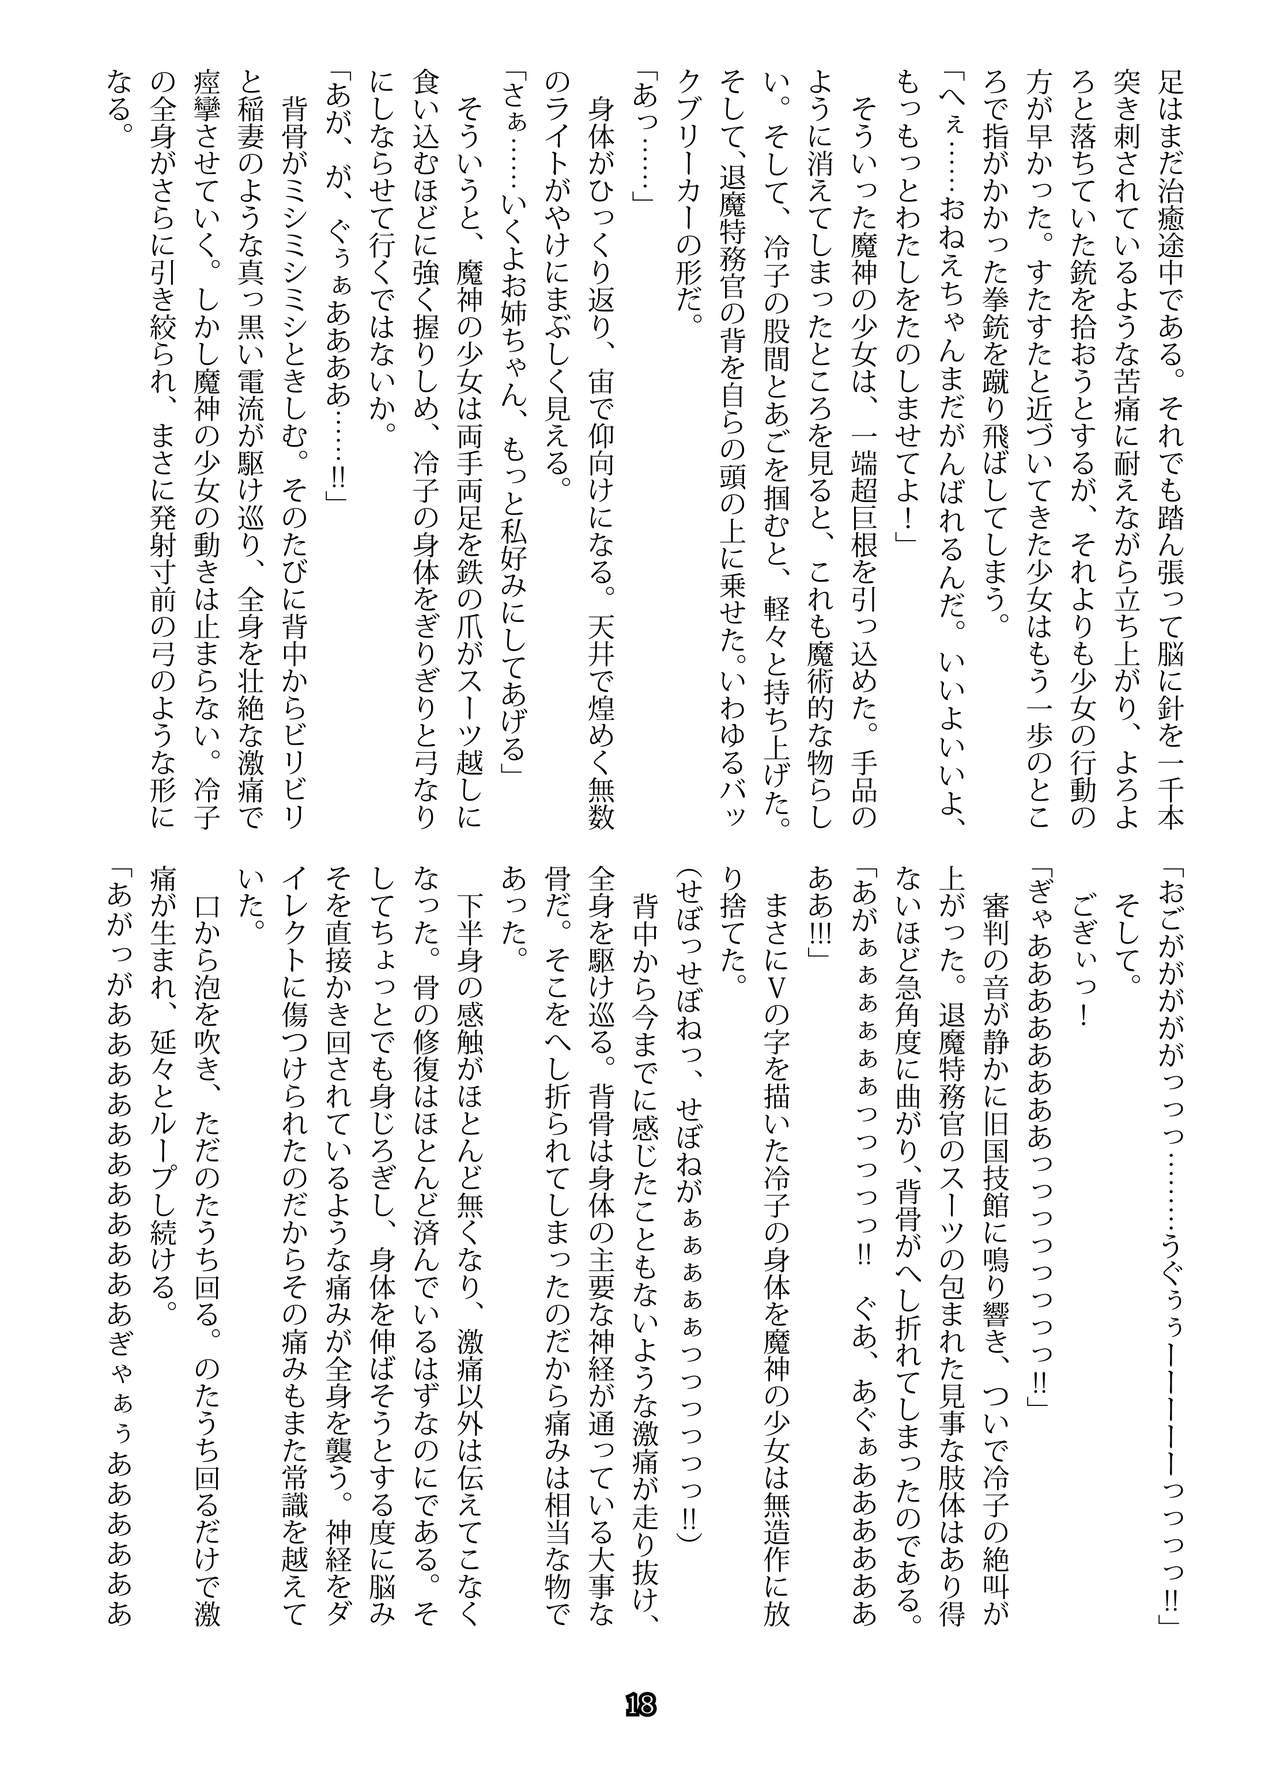 足はまだ治癒途中である。それでも踏ん張って脳に針を一千本
突き刺されているような苦痛に耐えながら立ち上がり、よろよ
ろと落ちていた銃を拾おうとするが、それよりも少女の行動の
方が早かった。すたすたと近づいてきた少女はもう一歩のとこ
ろで指がかかった拳銃を蹴り飛ばしてしまう。
「へぇ……おねえちゃんまだがんばれるんだ。いいよいいよ、
もっもっとわたしをたのしませてよ！」
　そういった魔神の少女は、一端超巨根を引っ込めた。手品の
ように消えてしまったところを見ると、これも魔術的な物らし
い。そして、冷子の股間とあごを掴むと、軽々と持ち上げた。
そして、退魔特務官の背を自らの頭の上に乗せた。いわゆるバッ
クブリーカーの形だ。
「あっ……」
　身体がひっくり返り、宙で仰向けになる。天井で煌めく無数
のライトがやけにまぶしく見える。
「さぁ……いくよお姉ちゃん、もっと私好みにしてあげる」
　そういうと、魔神の少女は両手両足を鉄の爪がスーツ越しに
食い込むほどに強く握りしめ、冷子の身体をぎりぎりと弓なり
にしならせて行くではないか。
「あが、が、ぐぅぁああああ……!!」
　背骨がミシミシミシときしむ。そのたびに背中からビリビリ
と稲妻のような真っ黒い電流が駆け巡り、全身を壮絶な激痛で
痙攣させていく。しかし魔神の少女の動きは止まらない。冷子
の全身がさらに引き絞られ、まさに発射寸前の弓のような形に
なる。
「おごがががががっっっ………うぐぅぅーーーーーっっっっ!!」
　そして。
　ごぎぃっ！
「ぎゃあああああああああっっっっっっっっ!!」
　審判の音が静かに旧国技館に鳴り響き、ついで冷子の絶叫が
上がった。退魔特務官のスーツの包まれた見事な肢体はあり得
ないほど急角度に曲がり、背骨がへし折れてしまったのである。
「あがぁぁぁぁぁぁっっっっっ!!　ぐあ、あぐぁああああああ
ああ!!!」
　まさにＶの字を描いた冷子の身体を魔神の少女は無造作に放
り捨てた。
（せぼっせぼねっ、せぼねがぁぁぁぁぁっっっっっっ!!）
　背中から今までに感じたこともないような激痛が走り抜け、
全身を駆け巡る。背骨は身体の主要な神経が通っている大事な
骨だ。そこをへし折られてしまったのだから痛みは相当な物で
あった。
　下半身の感触がほとんど無くなり、激痛以外は伝えてこなく
なった。骨の修復はほとんど済んでいるはずなのにである。そ
してちょっとでも身じろぎし、身体を伸ばそうとする度に脳み
そを直接かき回されているような痛みが全身を襲う。神経をダ
イレクトに傷つけられたのだからその痛みもまた常識を越えて
いた。
　口から泡を吹き、ただのたうち回る。のたうち回るだけで激
痛が生まれ、延々とループし続ける。
「あがっがああああああああああああぎゃぁぅああああああ
18